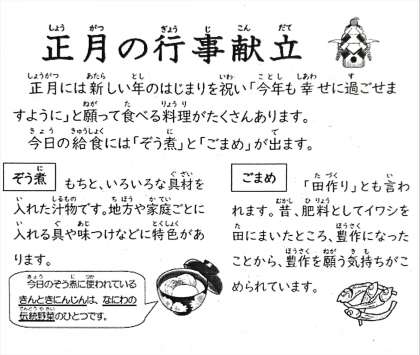 正月の行事献立
正月には新しい年のはじまりを祝い「今年も幸せに過ごせま
すように」と願って食べる料理がたくさんあります。
今日の給食には「ぞう煮」と「ごまめ」が出ます。
ぞう煮
もちと、いろいろな具材を
入れた汁物です。地方や家庭ごとに
入れる具や味つけなどに特色があ
ります。
今日のぞう煮に使われている
きんときにんじんは、なにわの
伝統野菜のひとつです。
ごまめ
「田作り」とも言わ
れます。昔、肥料としてイワシを
田にまいたところ、豊作になった
ことから、豊作を願う気持ちがこ
められています。